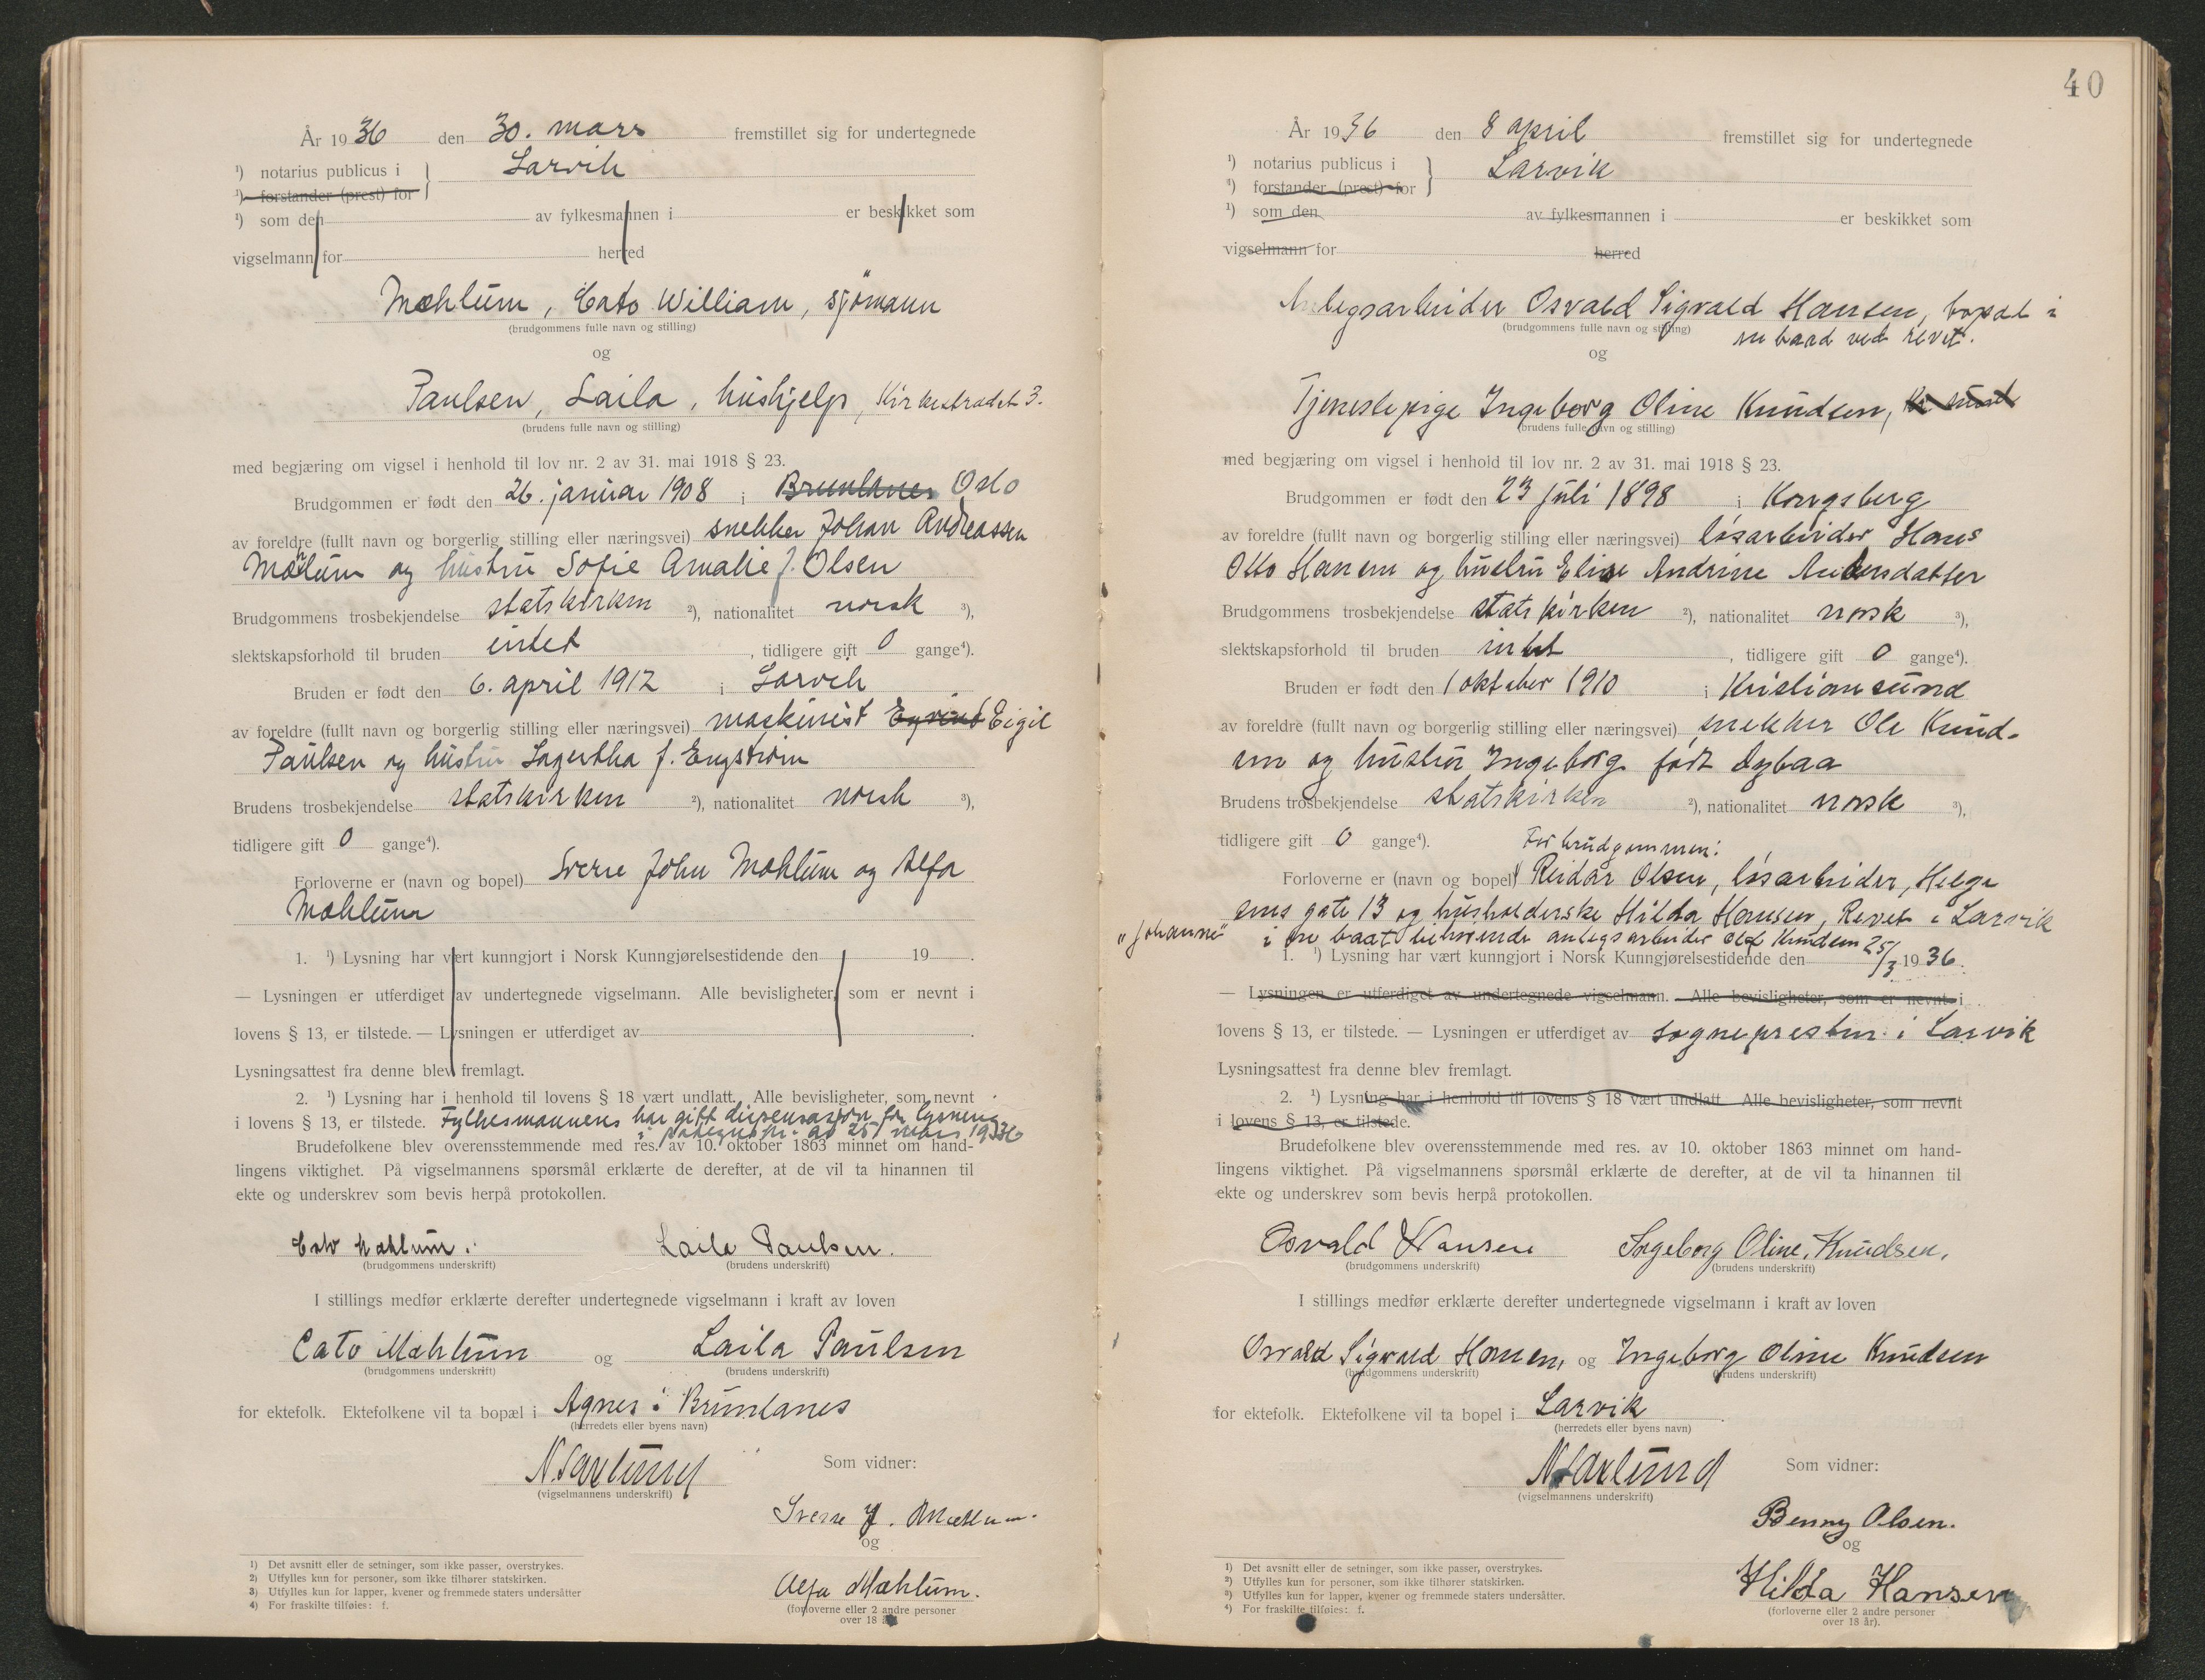 År 1936 den 30. mars fremstillet sig for undertegnede
¹) notarius publicus i } Larvik
¹) forstander (prest) for
¹) som den av fylkesmannen i er beskikket som
vigselmann for herred
Mæhlum, Cato William, sjømann
(brudgommens fulle navn og stilling)
og
Paulsen, Laila, hushjelp, Kirkestrædet 3.
(brudens fulle navn og stilling)
med begjæring om vigsel i henhold til lov nr. 2 av 31. mai 1918 § 23.
Brudgommen er født den 26. januar 1908 i Brunlanes Oslo
av foreldre (fullt navn og borgerlig stilling eller næringsvei) snekker Johan Andreassen
Mæhlum og hustru Sofie Amalie f. Olsen
Brudgommens trosbekjendelse statskirken ²), nationalitet norsk ³),
slektskapsforhold til bruden intet, tidligere gift 0 gange⁴).
Bruden er født den 6. april 1912 i Larvik
av foreldre (fullt navn og borgerlig stilling eller næringsvei) maskinist Eyvind Eigil
Paulsen og hustru Lagertha f. Engstrøm
Brudens trosbekjendelse statskirken ²), nationalitet norsk ³),
tidligere gift 0 gange⁴).
Forloverne er (navn og bopel) Sverre John Mæhlum og Alfa
Mæhlum
1. ¹) Lysning har vært kunngjort i Norsk Kunngjørelsestidende den 19 .
— Lysningen er utferdiget av undertegnede vigselmann. Alle bevisligheter, som er nevnt i
lovens § 13, er tilstede. — Lysningen er utferdiget av .
Lysningsattest fra denne blev fremlagt.
2. ¹) Lysning har i henhold til lovens § 18 vært undlatt. Alle bevisligheter, som nevnt
i lovens § 13, er tilstede. Fylkesmannens har gitt dispensasjon for lysning
i påtegnskr. av 25/ mars 1936
Brudefolkene blev overensstemmende med res. av 10. oktober 1863 minnet om hand-
lingens viktighet. På vigselmannens spørsmål erklærte de derefter, at de vil ta hinannen til
ekte og underskrev som bevis herpå protokollen.
Cato Mæhlum. Laila Paulsen.
(brudgommens underskrift) (brudens underskrift)
I stillings medfør erklærte derefter undertegnede vigselmann i kraft av loven
Cato Mæhlum og Laila Paulsen
(brudgommens underskrift) (brudens underskrift)
for ektefolk. Ektefolkene vil ta bopæl i Agnes i Brunlanes
(herredets eller byens navn)
N. Sarlund Som vidner:
(vigselmannens underskrift)
Sverre J. Mæhlum.
og
Alfa Mæhlum.
(forloverne eller 2 andre personer
over 18 år).
¹) Det avsnitt eller de setninger, som ikke passer, overstrykes.
²) Utfylles kun for personer, som ikke tilhører statskirken.
³) Utfylles kun for lapper, kvener og fremmede staters undersåtter
⁴) For fraskilte tilføies: f.
40
År 1936 den 8 april fremstillet sig for undertegnede
¹) notarius publicus i } Larvik
¹) forstander (prest) for
¹) som den av fylkesmannen i er beskikket som
vigselmann for herred
Anlegsarbeider Osvald Sigvald Hansen, bopæl i
(brudgommens fulle navn og stilling)
en baad ved revet.
og
Tjenestepige Ingeborg Oline Knudsen,
(brudens fulle navn og stilling)
med begjæring om vigsel i henhold til lov nr. 2 av 31. mai 1918 § 23.
Brudgommen er født den 23 juli 1898 i Kongsberg
av foreldre (fullt navn og borgerlig stilling eller næringsvei) løsarbeider Hans
Otto Hansen og hustru Elise Andrine Andersdatter
Brudgommens trosbekjendelse statskirken ²), nationalitet norsk ³),
slektskapsforhold til bruden intet, tidligere gift 0 gange⁴).
Bruden er født den 1 oktober 1910 i Kristiansund
av foreldre (fullt navn og borgerlig stilling eller næringsvei) snekker Ole Knud-
sen og hustru Ingeborg født Dybaa
Brudens trosbekjendelse statskirken ²), nationalitet norsk ³),
tidligere gift 0 gange⁴). For brudgommen:
Forloverne er (navn og bopel) Reidar Olsen, løsarbeider, Helge
sens gate 13 og husholderske Hilda Hansen, Revet i Larvik
"Johanne" i en baat tilhørende anlegsarbeider Olaf Knudsen
1. ¹) Lysning har vært kunngjort i Norsk Kunngjørelsestidende den 25/3 1936.
— Lysningen er utferdiget av undertegnede vigselmann. Alle bevisligheter, som er nevnt i
lovens § 13, er tilstede. — Lysningen er utferdiget av sognepresten i Larvik
Lysningsattest fra denne blev fremlagt.
2. ¹) Lysning har i henhold til lovens § 18 vært undlatt. Alle bevisligheter, som nevnt
i lovens § 13, er tilstede.
Brudefolkene blev overensstemmende med res. av 10. oktober 1863 minnet om hand-
lingens viktighet. På vigselmannens spørsmål erklærte de derefter, at de vil ta hinannen til
ekte og underskrev som bevis herpå protokollen.
Osvald Hansen Ingeborg Oline, Knudsen,
(brudgommens underskrift) (brudens underskrift)
I stillings medfør erklærte derefter undertegnede vigselmann i kraft av loven
Osvald Sigvald Hansen, og Ingeborg Oline Knudsen
(brudgommens underskrift) (brudens underskrift)
for ektefolk. Ektefolkene vil ta bopel i Larvik.
(herredets eller byens navn)
N. Sarlund Som vidner:
(vigselmannens underskrift)
Benny Olsen.
og
Hilda Hansen
(forloverne eller 2 andre personer
over 18 år).
¹) Det avsnitt eller de setninger, som ikke passer, overstrykes.
²) Utfylles kun for personer, som ikke tilhører statskirken.
³) Utfylles kun for lapper, kvener og fremmede staters undersåtter.
⁴) For fraskilte tilføies: f.